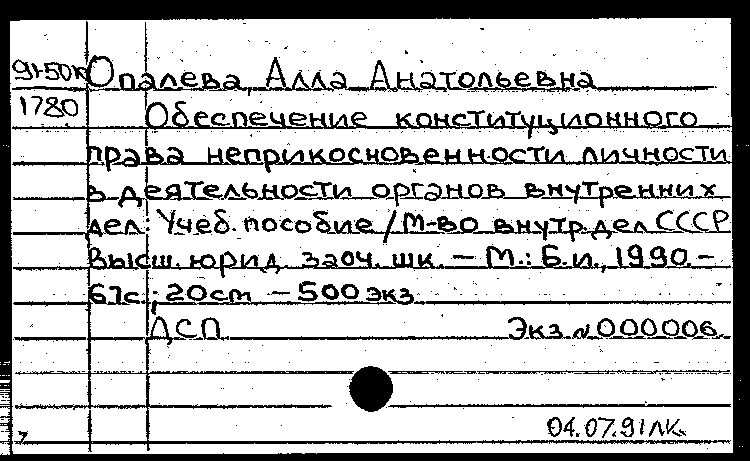 91-50К Опалева, Алла Анатольевна
1780 Обеспечение конституционного
права неприкосновенности личности
в деятельности органов внутренних
дел: Учеб. пособие / М-во внутр. дел СССР
Высш. юрид. заоч. шк. – М.: Б.и., 1990. –
67с.; 20cm – 500 экз
ДСП Экз №000006
04.07.91 ЛК.